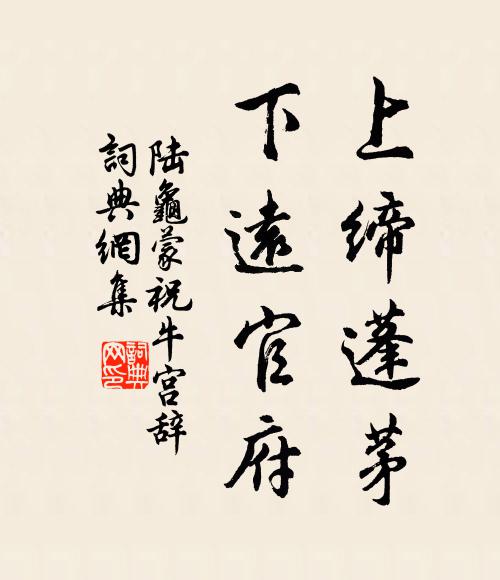 上締蓬茅
下遠官府
陆龜蒙祝牛宫辞
詞典網集
詞典網印